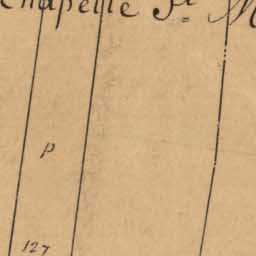 Chapelle St. M
p
127